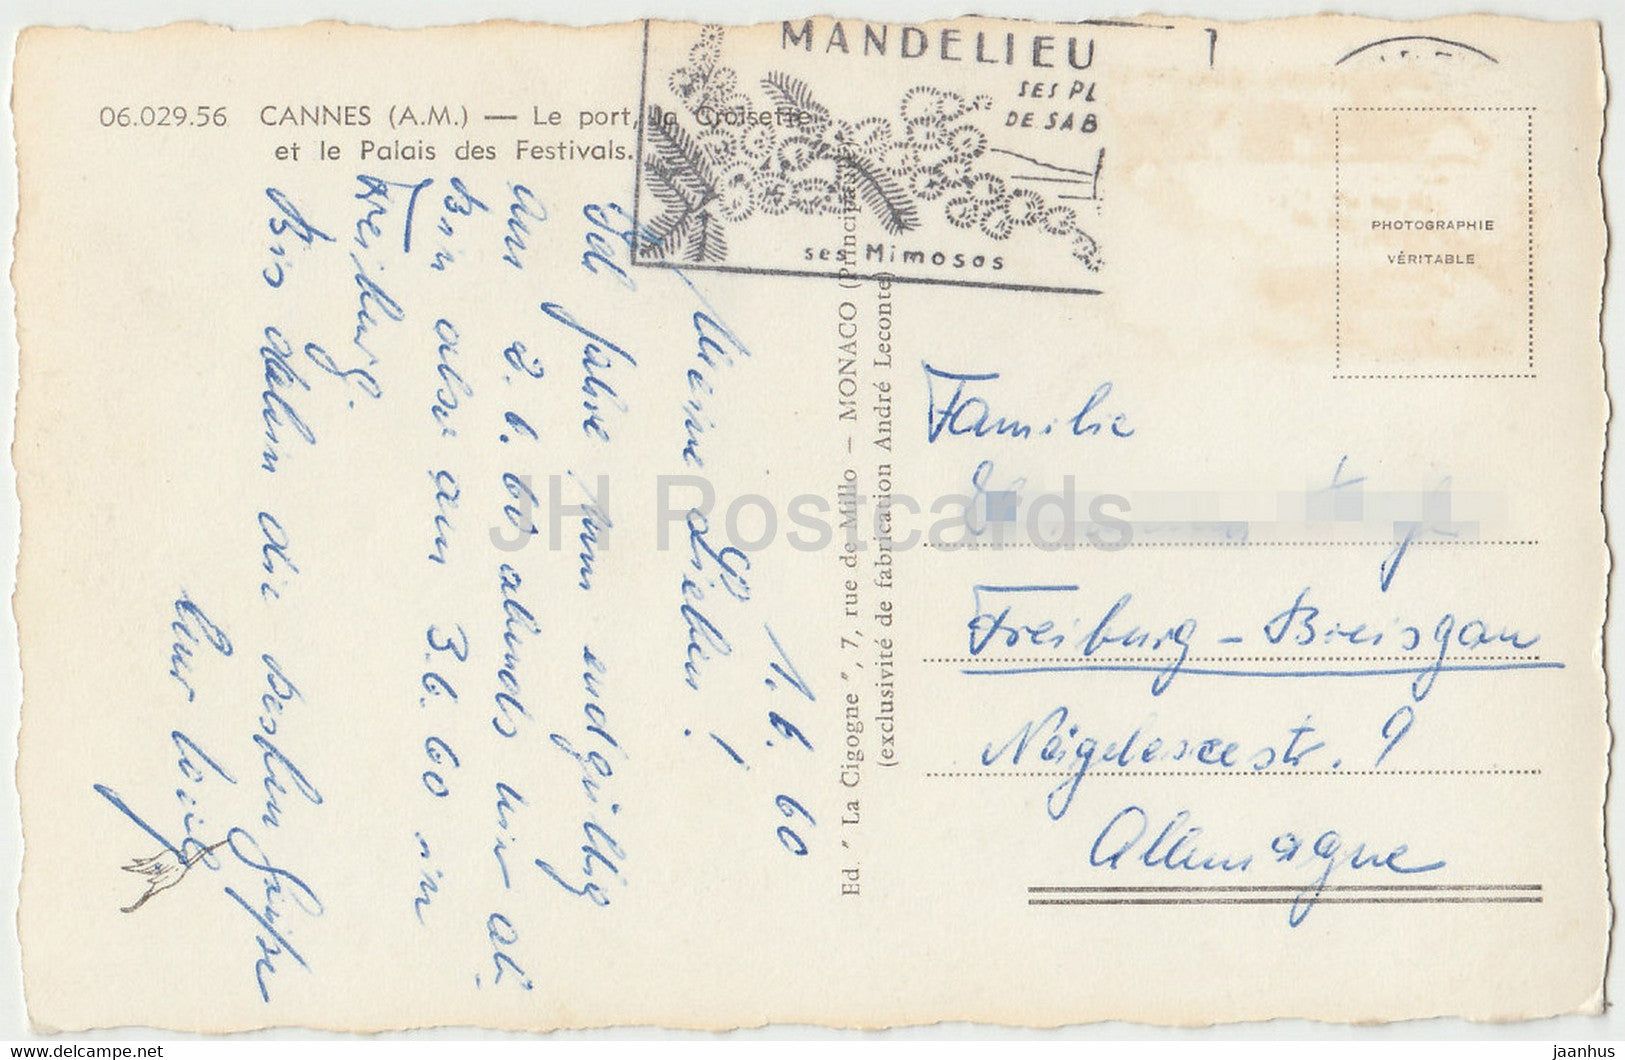 MANDELIEU
SES PL
DE SAB
ses Mimosas
06.029.56 CANNES (A.M.) — Le port, la Croisette
et le Palais des Festivals.
PHOTOGRAPHIE
VÉRITABLE
1.6.60
Meine Lieben!
Ich fahre nun endgültig
am 2.6.60 abends hier ab.
Bin also am 3.6.60 in
Freiburg.
Bis dahin die besten Grüße
Euer
Ed. " La Cigogne ", 7, rue de Millo — MONACO (Principauté)
(exclusivité de fabrication André Leconte)
Familie
Freiburg - Breisgau
Nägeleseestr. 9
Allemagne
JH Postcards
jaanhus
www.delcampe.net